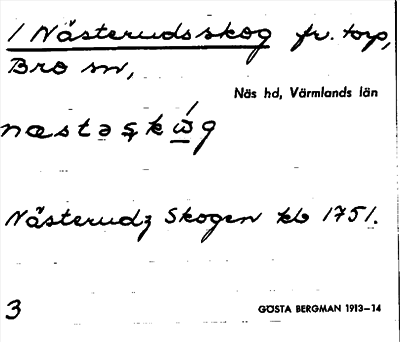 / Nästerudsskog fr. torp,
Bro sn,
Näs hd, Värmlands län
Nästerudz Skogen kb 1751.
3
GÖSTA BERGMAN 1913–14